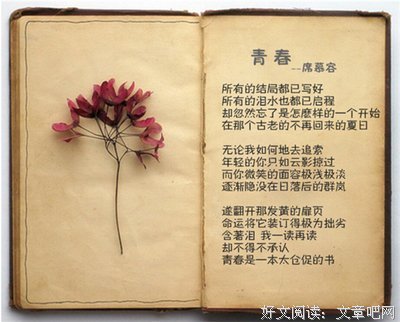 青春
--席慕容
所有的结局都已写好
所有的泪水也都已启程
却忽然忘了是怎麽样的一个开始
在那个古老的不再回来的夏日
无论我如何地去追索
年轻的你只如云影掠过
而你微笑的面容极浅极淡
逐渐隐没在日落后的群岚
遂翻开那发黄的扉页
命运将它装订得极为拙劣
含著泪 我一读再读
却不得不承认
青春是一本太仓促的书
好文阅读：文章吧网